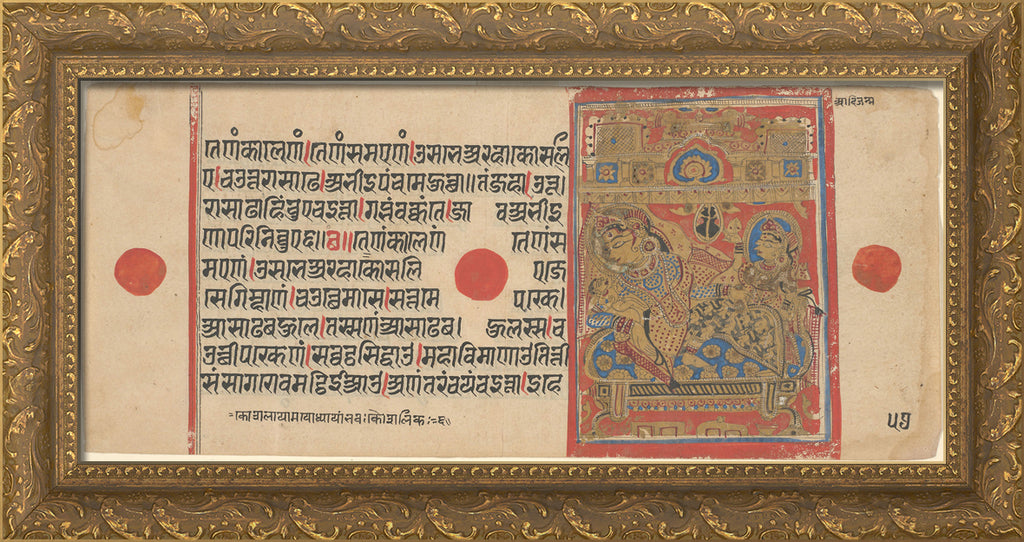 तेणं कालेणं।तेणं समएणं।उसभे अरहा कोसलि
ए।चउउत्तरासाढे।अभीइपंचमे हुत्था॥तं जहा।उत्त।
रासाढाहिं चुए चइत्ता।गब्भं वक्कंते।जाव अभीइ
णा परिनिव्वुए॥छ॥तेणं कालेणं तेणं स
मएणं।उसभे अरहा कोसलि ए।जे
से गिम्हाणं।चउत्थे मासे।सत्तमे पक्खे।
आसाढबहुले।तस्स णं आसाढब। हुलस्स।च
उत्थीपक्खेणं।सव्वट्ठसिद्धाउ।महाविमाणाउ तित्ती
सं सागरोवमट्ठिइआउ।अणंतरं चयं चइत्ता।इहे
५७